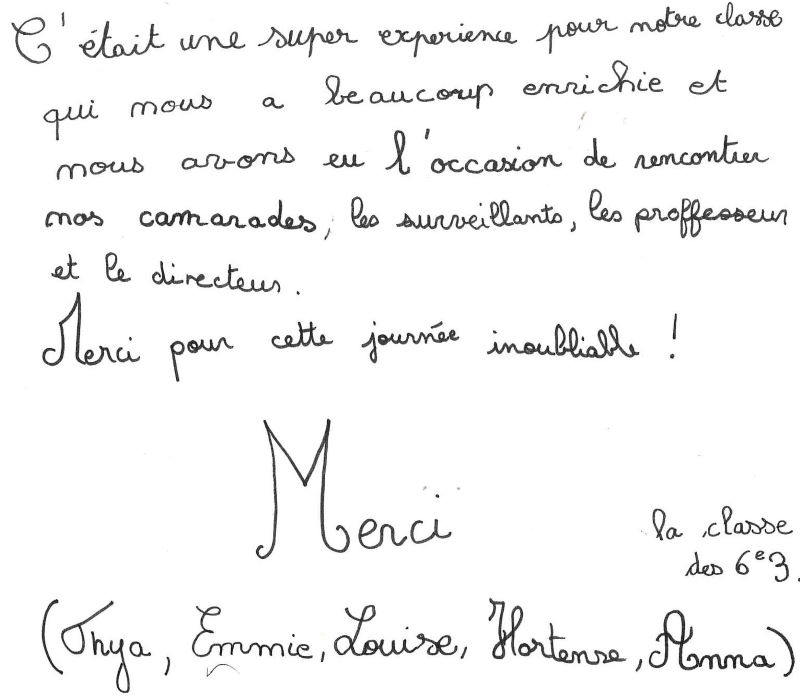 C'était une super experience pour notre classe
qui nous a beaucoup enrichie et
nous avons eu l'occasion de rencontrer
nos camarades, les surveillants, les proffesseur
et le directeur.
Merci pour cette journée inoubliable !
Merci
la classe
des 6e3.
(Thya, Emmie, Louise, Hortense, Anna)